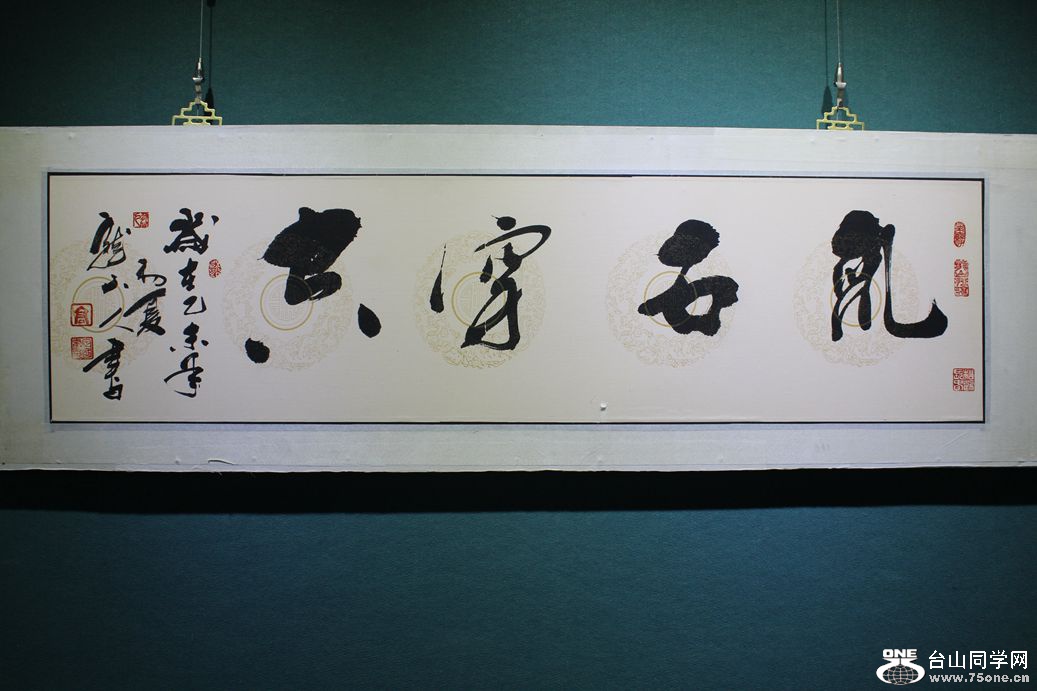 亂石穿空
歲在乙未年
初夏
山人書
ONE
台山同学网
www.75one.cn